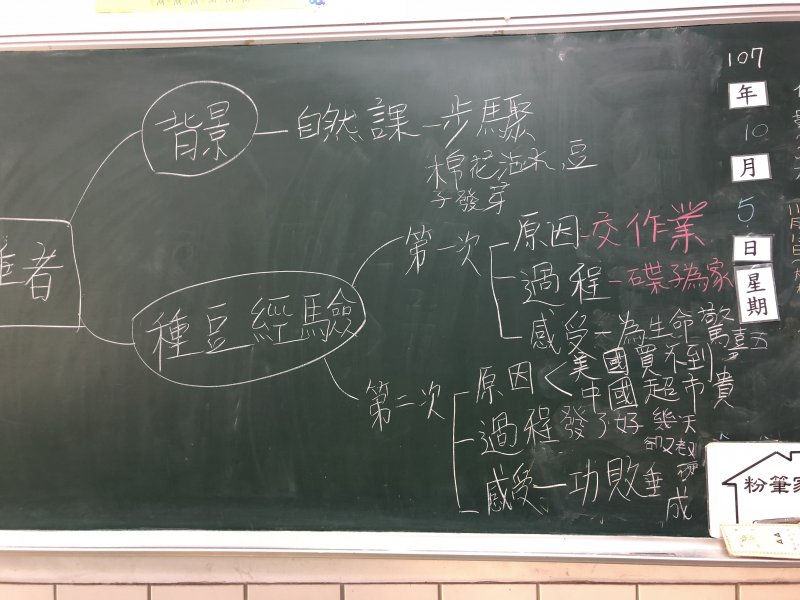 者
背景
自然課
步驟
棉花泡水、豆
子發芽
種豆經驗
第一次
原因
交作業
過程
碟子為家
感受
為生命驚喜
第二次
原因
美國買不到
中國超市貴
過程
發了好幾天
感受
功敗垂成
107
年
10
月
5
日
星期
五
粉筆家